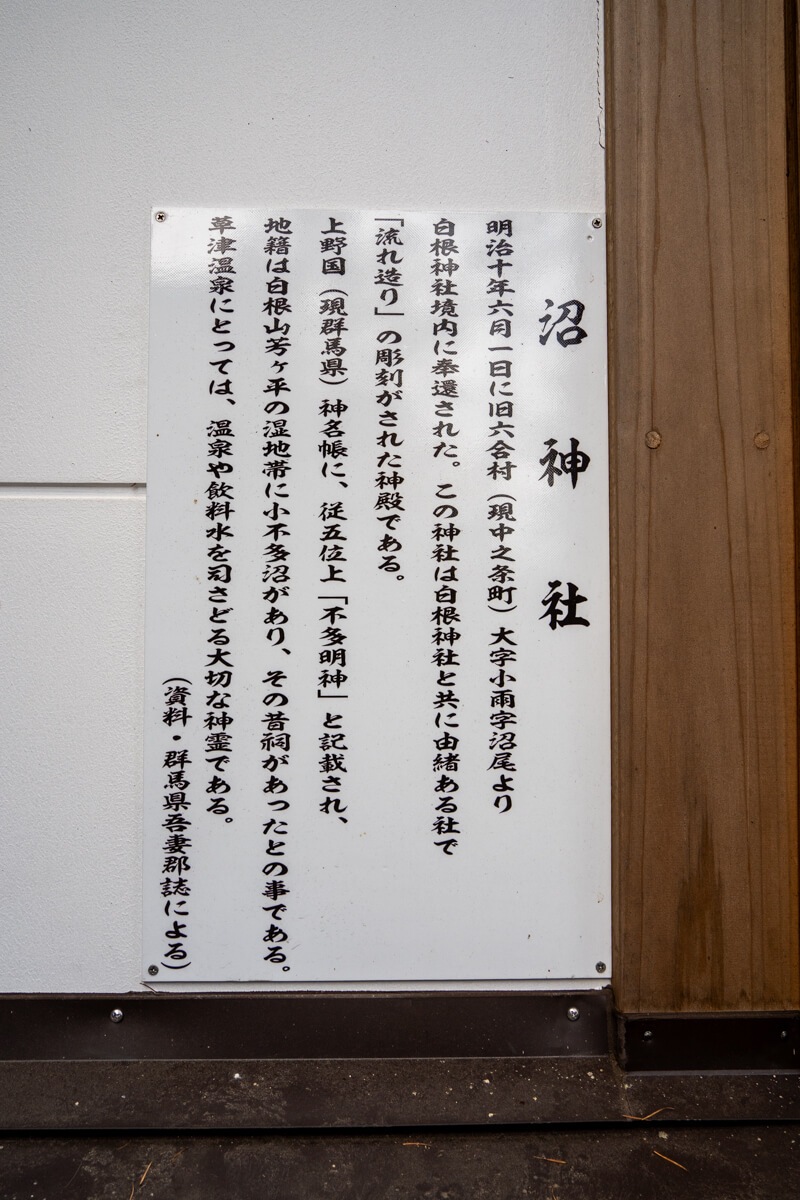 沼神社
明治十年六月一日に旧六合村（現中之条町）大字小雨字沼尾より
白根神社境内に奉還された。この神社は白根神社と共に由緒ある社で
「流れ造り」の彫刻がされた神殿である。
上野国（現群馬県）神名帳に、従五位上「不多明神」と記載され、
地籍は白根山芳ヶ平の湿地帯に小不多沼があり、その昔祠があったとの事である。
草津温泉にとっては、温泉や飲料水を司さどる大切な神霊である。
（資料・群馬県吾妻郡誌による）